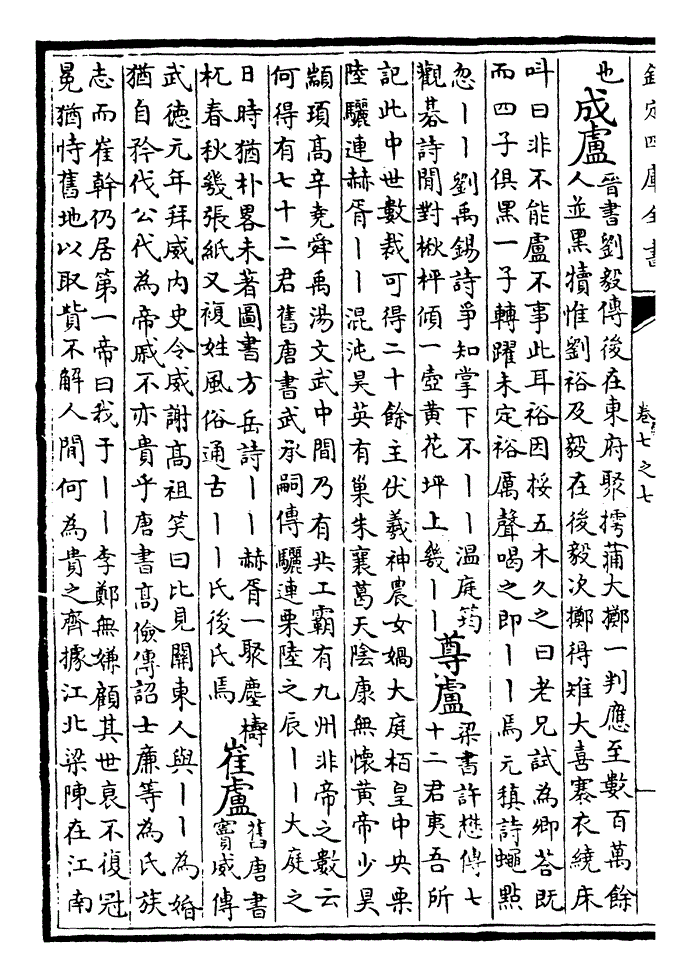 欽定四庫全書
卷七之七
也
成盧
晉書劉毅傳後在東府聚摴蒲大擲一判應至數百萬餘
人並黑犢惟劉裕及毅在後毅次擲得雉大喜褰衣繞床
叫曰非不能盧不事此耳裕因挼五木久之曰老兄試為卿荅既
而四子俱黑一子轉躍未定裕厲聲喝之即丨丨焉元稹詩蠅點
忽丨丨劉禹錫詩爭知掌下不丨丨溫庭筠
觀碁詩閒對楸枰傾一壺黃花坪上幾丨丨
尊盧
梁書許懋傳七
十二君夷吾所
記此中世數裁可得二十餘主伏羲神農女媧大庭栢皇中央栗
陸驪連赫胥丨丨混沌昊英有巢朱襄葛天陰康無懷黃帝少昊
顓頊高辛堯舜禹湯文武中間乃有共工霸有九州非帝之數云
何得有七十二君舊唐書武承嗣傳驪連栗陸之辰丨丨大庭之
日時猶朴畧未著圖書方岳詩丨丨赫胥一聚塵檮
杌春秋幾張紙又複姓風俗通古丨丨氏後氏焉
崔盧
舊唐書
竇威傳
武德元年拜威内史令威謝高祖笑曰比見關東人與丨丨為婚
猶自矜伐公代為帝戚不亦貴乎唐書高儉傳詔士廉等為氏族
志而崔幹仍居第一帝曰我于丨丨李鄭無嫌顧其世衰不復冠
冕猶恃舊地以取貲不解人間何為貴之齊據江北梁陳在江南